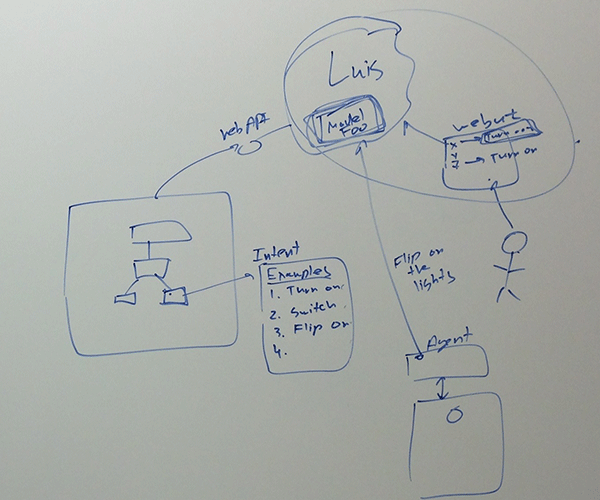 Luis
Model
FOO
web API
webui
x → Turn on
y
z → Turn on
Intent
Examples
1. Turn on
2. Switch
3. Flip on
4.
Flip on
the
lights
Agent